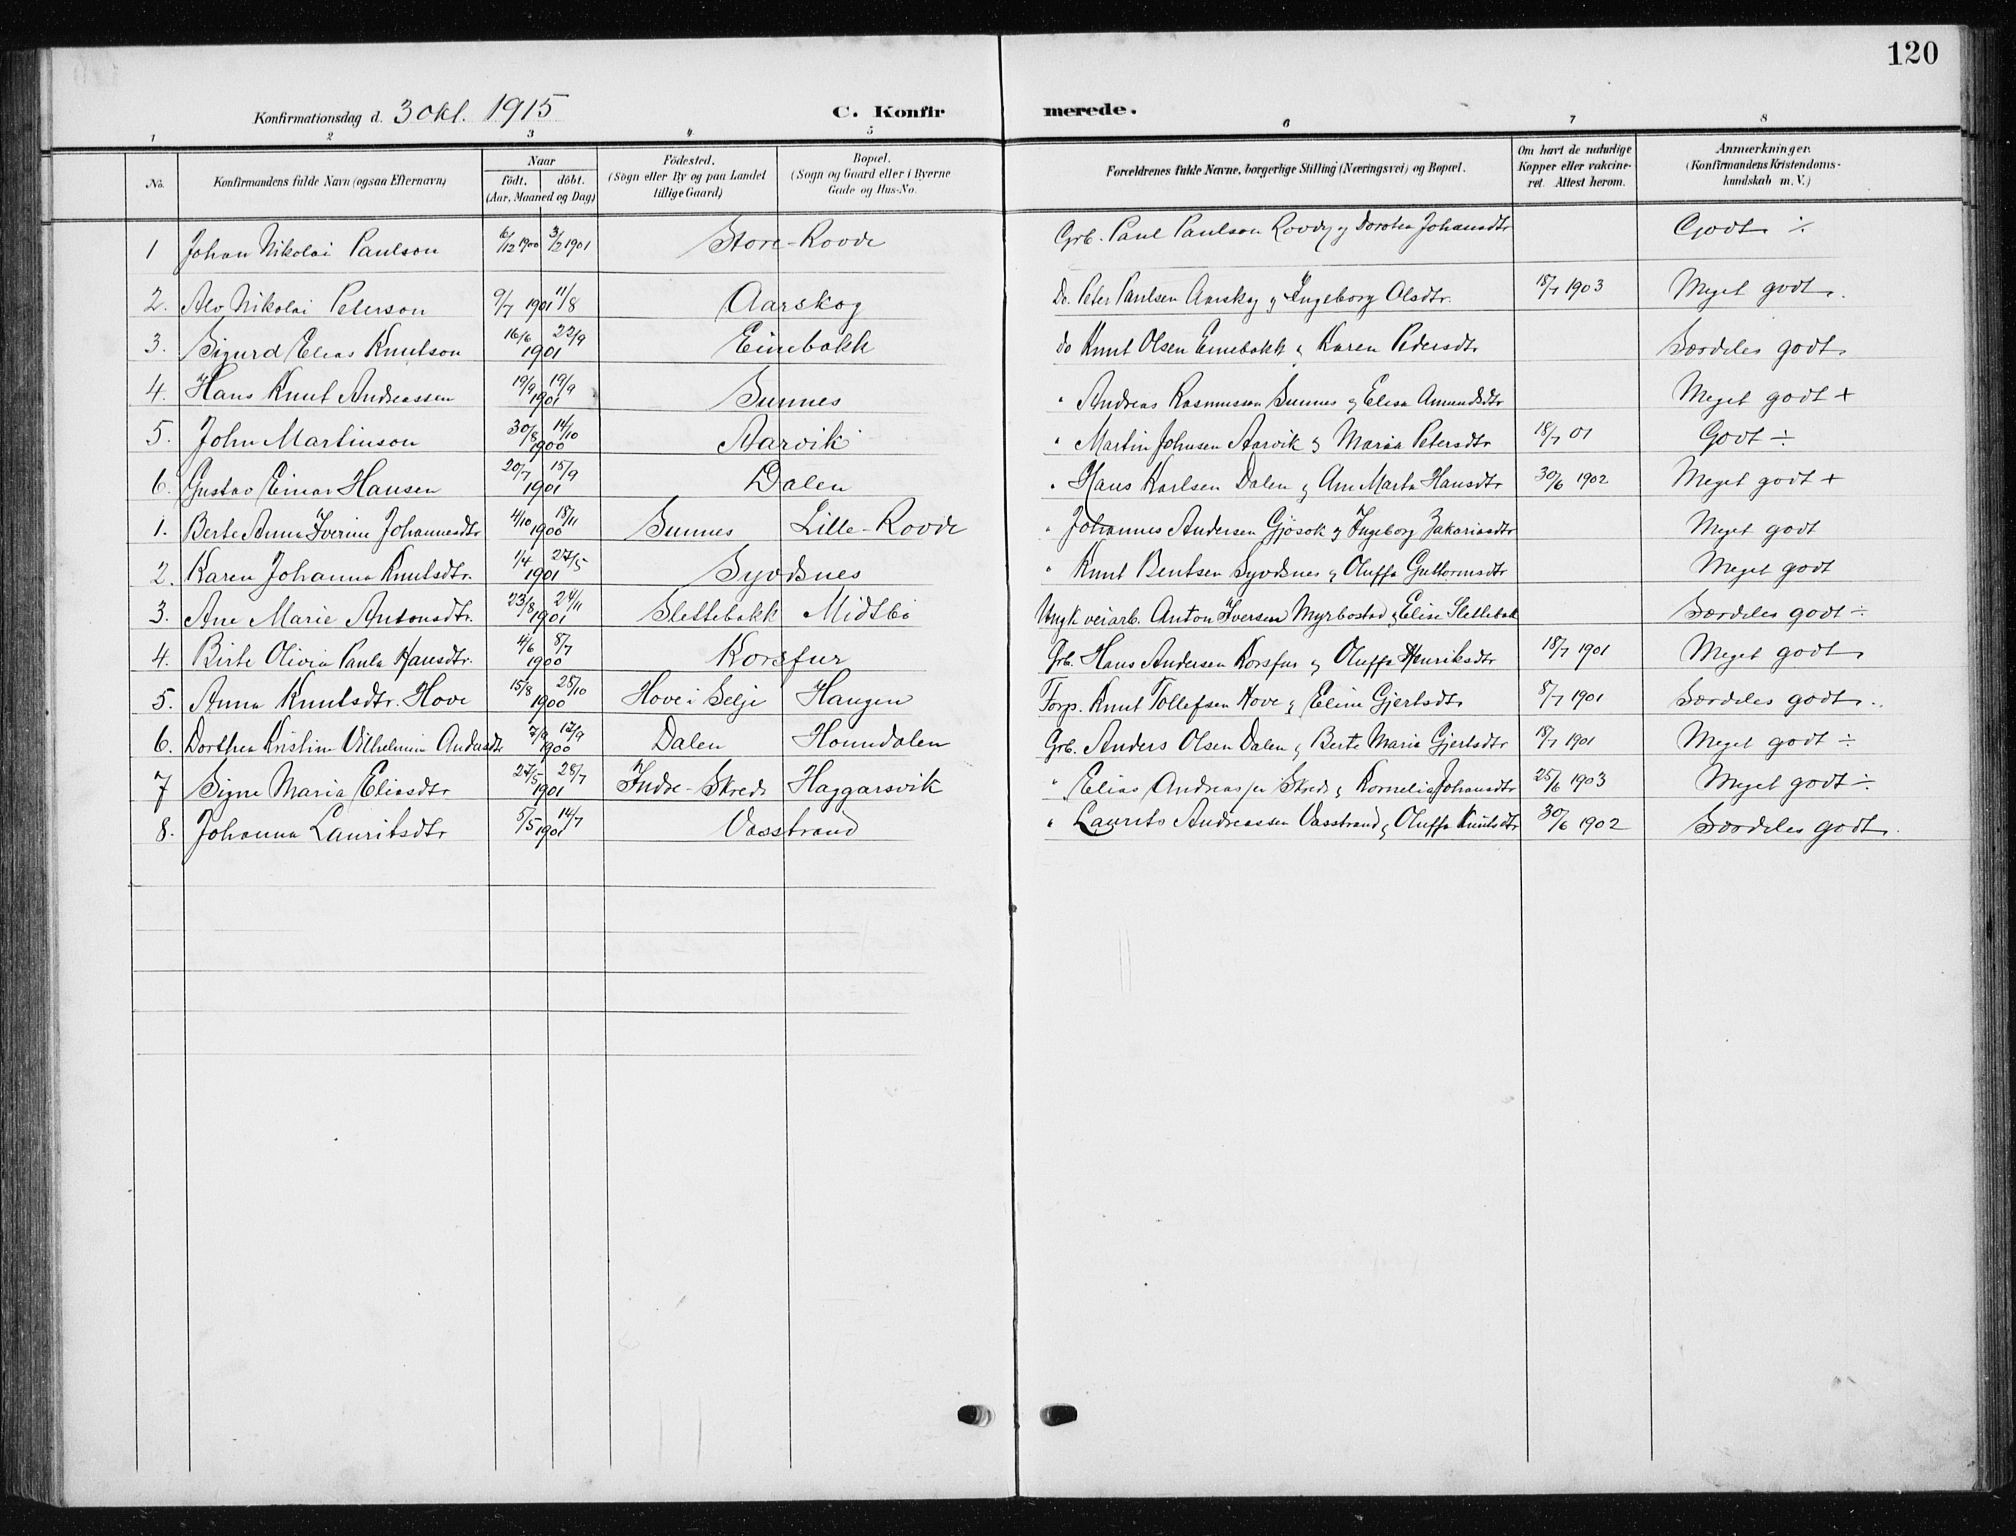 120
Konfirmationsdag d. 3 Okt. 1915 C. Konfirmerede.
1 2 3 4 5 6 7 8
No. Konfirmandens fulde Navn (ogsaa Efternavn) Naar födt. döbt. (Aar, Maaned og Dag) Födested. (Sogn eller By og paa Landet tillige Gaard) Bopæl. (Sogn og Gaard eller i Byerne Gade og Hus-No. Forældrenes fulde Navne, borgerlige Stilling (Næringsvei) og Bopæl. Om havt de naturlige Kopper eller vakcineret. Attest herom. Anmærkninger. (Konfirmandens Kristendomskundskab m. V.)
1 Johan Nikolai Paulson 6/12 1900 3/2 1901 Store-Rovde Grb. Paul Paulson Rovde og Dorotea Johansdtr Godt ÷
2. Alv Nikolai Peterson 9/7 1901 11/8 Aarskog Do. Peter Paulsen Aarskog og Ingeborg Olsdtr. 18/7 1903 Meget godt.
3. Sigurd Elias Knutson 16/6 1901 22/9 Einebakk do Knut Olsen Einebakk & Karen Pedersdtr Særdeles godt.
4. Hans Knut Andreassen 19/9 1901 19/9 Sunnes " Andreas Rasmussen Sunnes og Elisa Amundsdtr Meget godt +
5. John Martinson 30/8 1900 14/10 Aarvik " Martin Johnsen Aarvik og Maria Petersdtr 18/7 01 Godt ÷
6. Gustav Einar Hansen 20/7 1901 15/9 Dalen " Hans Karlsen Dalen & Ane Marta Hansdtr 30/6 1902 Meget godt +
1. Berte Anna Iverine Johannesdtr 4/10 1900 18/11 Sunnes Lille-Rovde " Johannes Andersen Gjosok og Ingeborg Zakariasdtr Meget godt
2. Karen Johanna Knutsdtr. 1/4 1901 27/5 Syvdsnes " Knut Bentsen Syvdsnes & Oluffa Guttormsdtr Meget godt
3. Ane Marie Antonsdtr. 23/8 1901 24/11 Slettebakk Midtbö Ungk veiarb. Anton Iversen Myrbostad & Elise Slettebak Særdeles godt ÷
4. Birte Olivia Paula Hansdtr. 4/6 1900 8/7 Korsfur Grb. Hans Andersen Korsfur og Oluffa Henriksdtr 18/7 1901 Meget godt
5. Anna Knutsdtr. Hove 15/8 1900 28/10 Hove i Selje Haugen Forp. Knut Tollefsen Hove & Eline Gjertsdtr 8/7 1901 Særdeles godt.
6. Dorthea Kristine Vilhelmine Andersdtr 7/9 1900 Dalen Honndalen Grb. Anders Olsen Dalen & Berte Maria Gjertsdtr 18/7 1901 Meget godt ÷
7 Signe Maria Eliasdtr 27/5 1901 28/7 Indre-Skreds Haggarsvik " Elias Andreassen Skreds & Kornelia Johansdtr 25/6 1903 Meget godt ÷
8. Johanna Lauritsdtr 5/5 1901 14/7 Vasstrand " Laurits Andreassen Vasstrand & Oluffa Knutsdtr 30/6 1902 Særdeles godt.